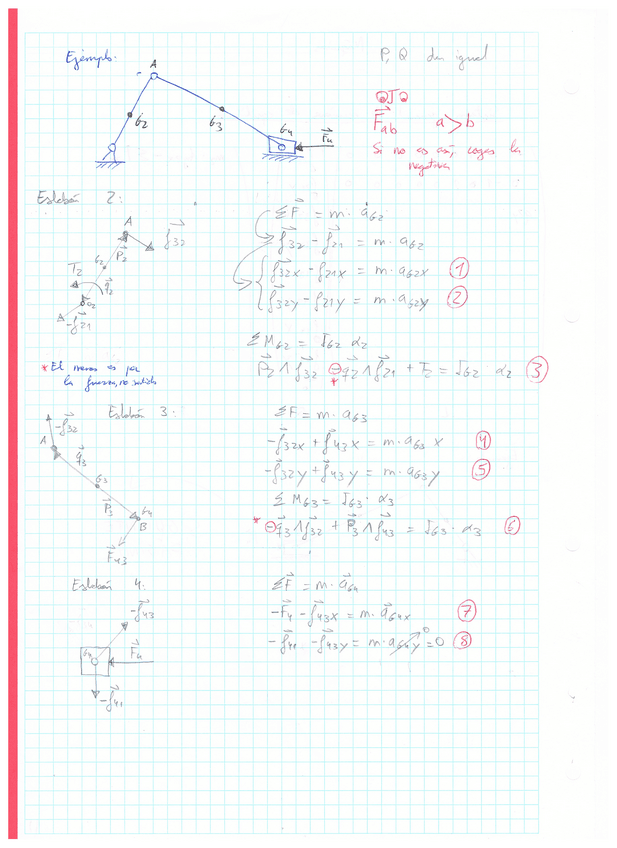 Ejemplo:
P, Q dan igual
A
G2
G3
G4
F4
OJO
Fab a > b
Si no es así, coges la
negativa
Eslabón 2:
A
f32
P2
G2
T2
q2
O2
-f21
ΣF = m · aG2
f32 - f21 = m · aG2
f32x - f21x = m · aG2x (1)
f32y - f21y = m · aG2y (2)
ΣMG2 = IG2 α2
P2 ∧ f32 ⊖ q2 ∧ f21 + T2 = IG2 α2 (3)
*
* El menos es por
la fuerza, no sentido
Eslabón 3:
-f32
A
q3
G3
P3
G4
B
F43
ΣF = m · aG3
-f32x + f43x = m · aG3 x (4)
-f32y + f43y = m · aG3 y (5)
ΣMG3 = IG3 · α3
* ⊖ q3 ∧ f32 + P3 ∧ f43 = IG3 · α3 (6)
Eslabón 4:
-f43
G4
F4
-f41
ΣF = m · aG4
-F4 - f43x = m · aG4x (7)
-f41 - f43y = m · aG4y = 0 (8)
0